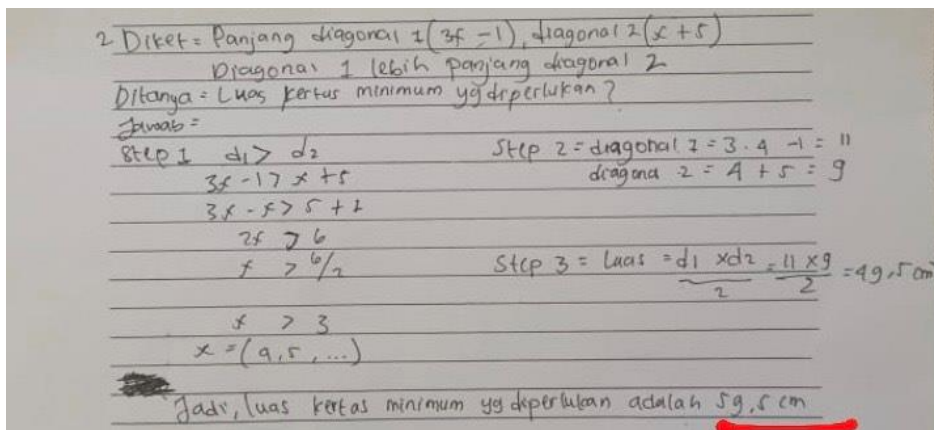 2 Diket = Panjang diagonal 1 (3x - 1), diagonal 2 (x + 5)
Diagonal 1 lebih panjang diagonal 2
Ditanya = Luas kertas minimum yg diperlukan ?
Jawab =
Step 1 d1 > d2
3x - 1 > x + 5
3x - x > 5 + 1
2x > 6
x > 6/2
x > 3
x = (4, 5, ...)
Step 2 = diagonal 1 = 3 . 4 - 1 = 11
diagona 2 = 4 + 5 = 9
Step 3 = Luas = d1 x d2 / 2 = 11 x 9 / 2 = 49,5 cm
Jadi, luas kertas minimum yg diperlukan adalah 59,5 cm